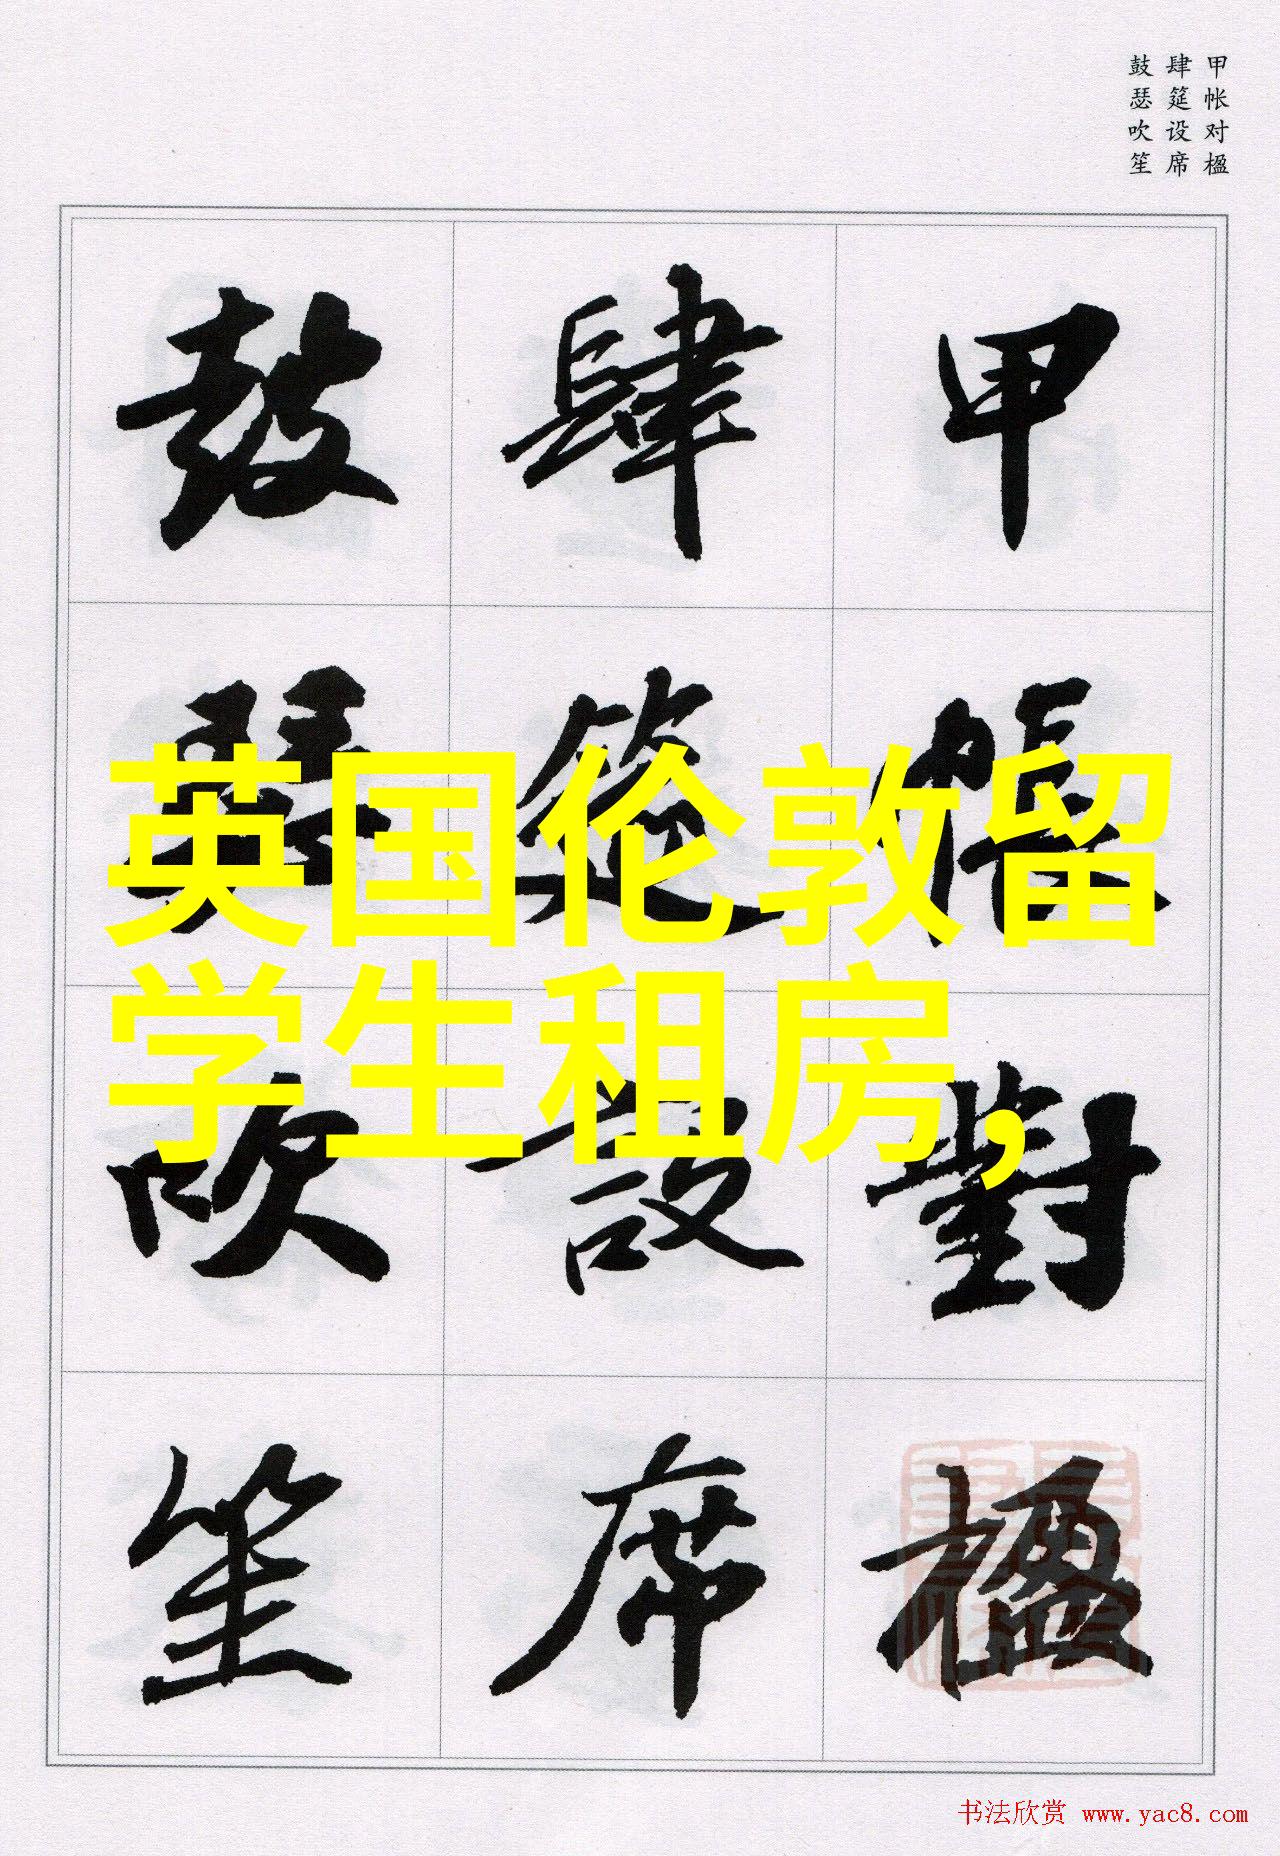 甲帐对楹
肆筵设席
鼓瑟吹笙
甲帳對楹
肆筵設席
鼓瑟吹笙
英国伦敦留
学生租房,
书法欣赏 www.yac8.com